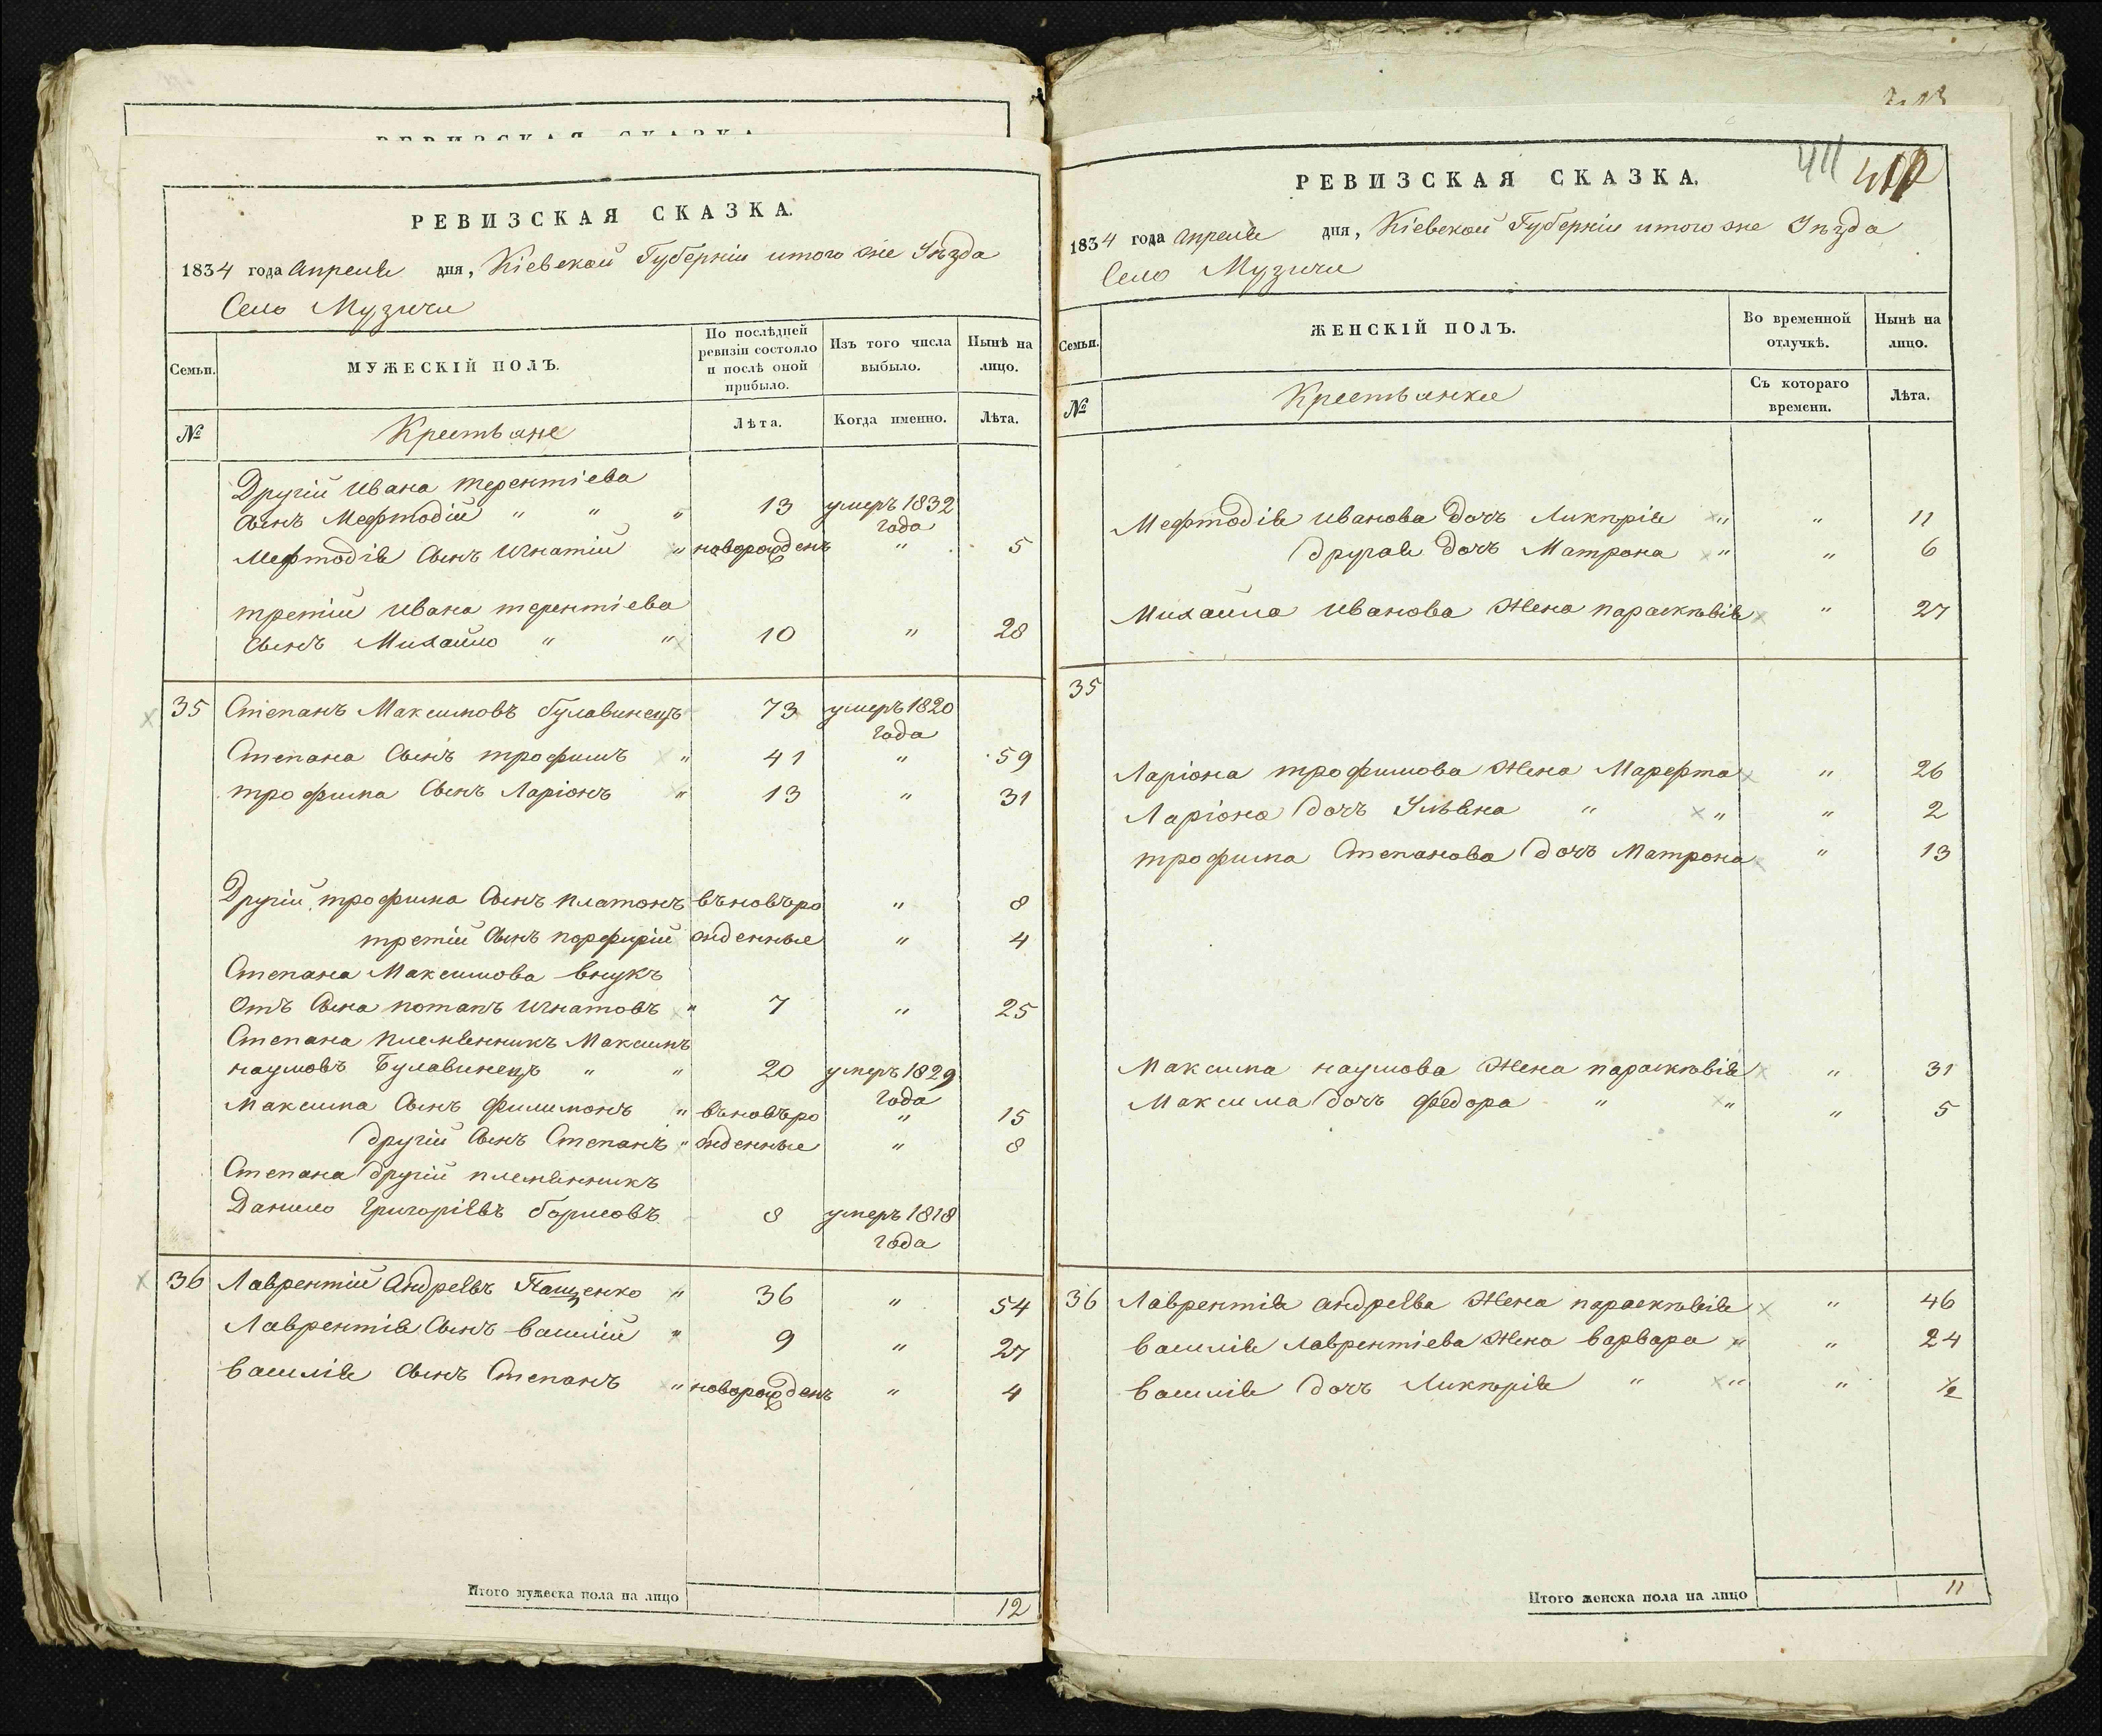 РЕВИЗСКАЯ СКАЗКА
РЕВИЗСКАЯ СКАЗКА.
1834 года Апреля дня, Кіевской Губерніи итого же Уѣзда
Село Музичи
Семьи.
МУЖЕСКІЙ ПОЛЪ.
По послѣдней ревизіи состояло и послѣ оной прибыло.
Изъ того числа выбыло.
Нынѣ на лицо.
№
Крестьяне
Лѣта.
Когда именно.
Лѣта.
Другій Ивана терентіева
сынъ Мефтодій " " " 13 умеръ 1832 года
Мефтодія сынъ Игнатій " новорожденъ " 5
третій Ивана терентіева
сынъ Михайло " " 10 " 28
35 Степанъ Максимовъ булавинецъ 73 умеръ 1820 года
Степана сынъ трофимъ " 41 " 59
трофима сынъ Ларіонъ " 13 " 31
Другій трофима сынъ платонъ въновъро " 8
третій сынъ порфирій жденные " 4
Степана Максимова внукъ
отъ сына потапъ Игнатовъ " 7 " 25
Степана племянникъ Максимъ
наумовъ Булавинецъ " " 20 умеръ 1829 года
Максима сынъ филимонъ " въновъро " 15
другій сынъ Степанъ " жденные " 8
Степана другій племянникъ
Данило Григоріевъ борисовъ 8 умеръ 1818 года
36 Лаврентій Андреевъ Пащенко " 36 " 54
Лаврентія сынъ василій " 9 " 27
василія сынъ Степанъ " новорожденъ " 4
Итого мужеска пола на лицо 12
411 412
РЕВИЗСКАЯ СКАЗКА.
1834 года Апреля дня, Кіевской Губерніи итого же Уѣзда
Село Музичи
Семьи.
ЖЕНСКІЙ ПОЛЪ.
Во временной отлучкѣ.
Нынѣ на лицо.
№
Крестьянки
Съ котораго времени.
Лѣта.
Мефтодія Иванова дочъ Ликѣрія " " 11
другая дочъ Матрона " " 6
Михайла Иванова жена параскѣвія " 27
35
Ларіона трофимова жена Марефта " 26
Ларіона дочъ Ульяна " " " 2
трофима Степанова дочъ Матрона " 13
Максима наумова жена параскѣвія " 31
Максима дочъ федора " " " 5
36 Лаврентія андреева жена параскѣвія " 46
василія лаврентіева жена варвара " " 24
василія дочъ Ликѣрія " " " ½
Итого женска пола на лицо 11